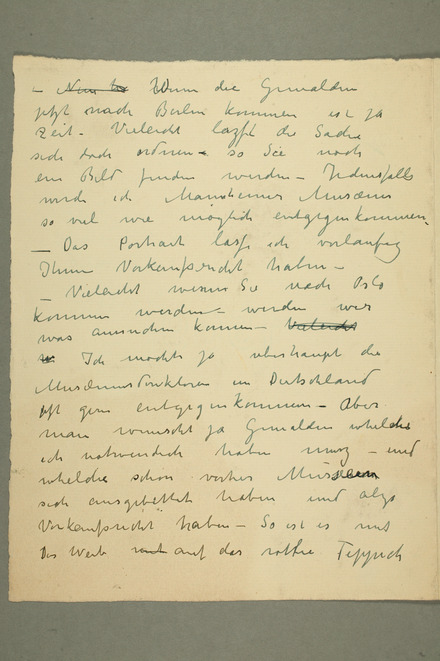 – Nun Wenn die Gemälden
jetzt nach Berlin kommen ist ja
Zeit – Vieleicht lasst die Sache
sich doch ordnen – so Sie noch
ein Bild finden werden – Jedenfalls
werde ich Mannheimer Museum
so viel wie möglich entgegenkommen.
– Das Portrait lass ich vorlaufig
Ihnen Vorkaufsrecht haben –
– Vieleicht wenn Sie nach Oslo
kommen werden – werden wir
was ausrichten konnen – Vieleicht
Ich mochte ja uberhaupt die
Museumsdirektoren in Deutschland
oft gern entgegenkommen – Aber
man wunscht ja Gemalden whelche
ich notwendich haben muss – und
whelche schon vorher Museum
sich ausgebittet haben und also
Vorkaufsrecht haben – So ist es mit
Das Weib auf das rothe Teppich